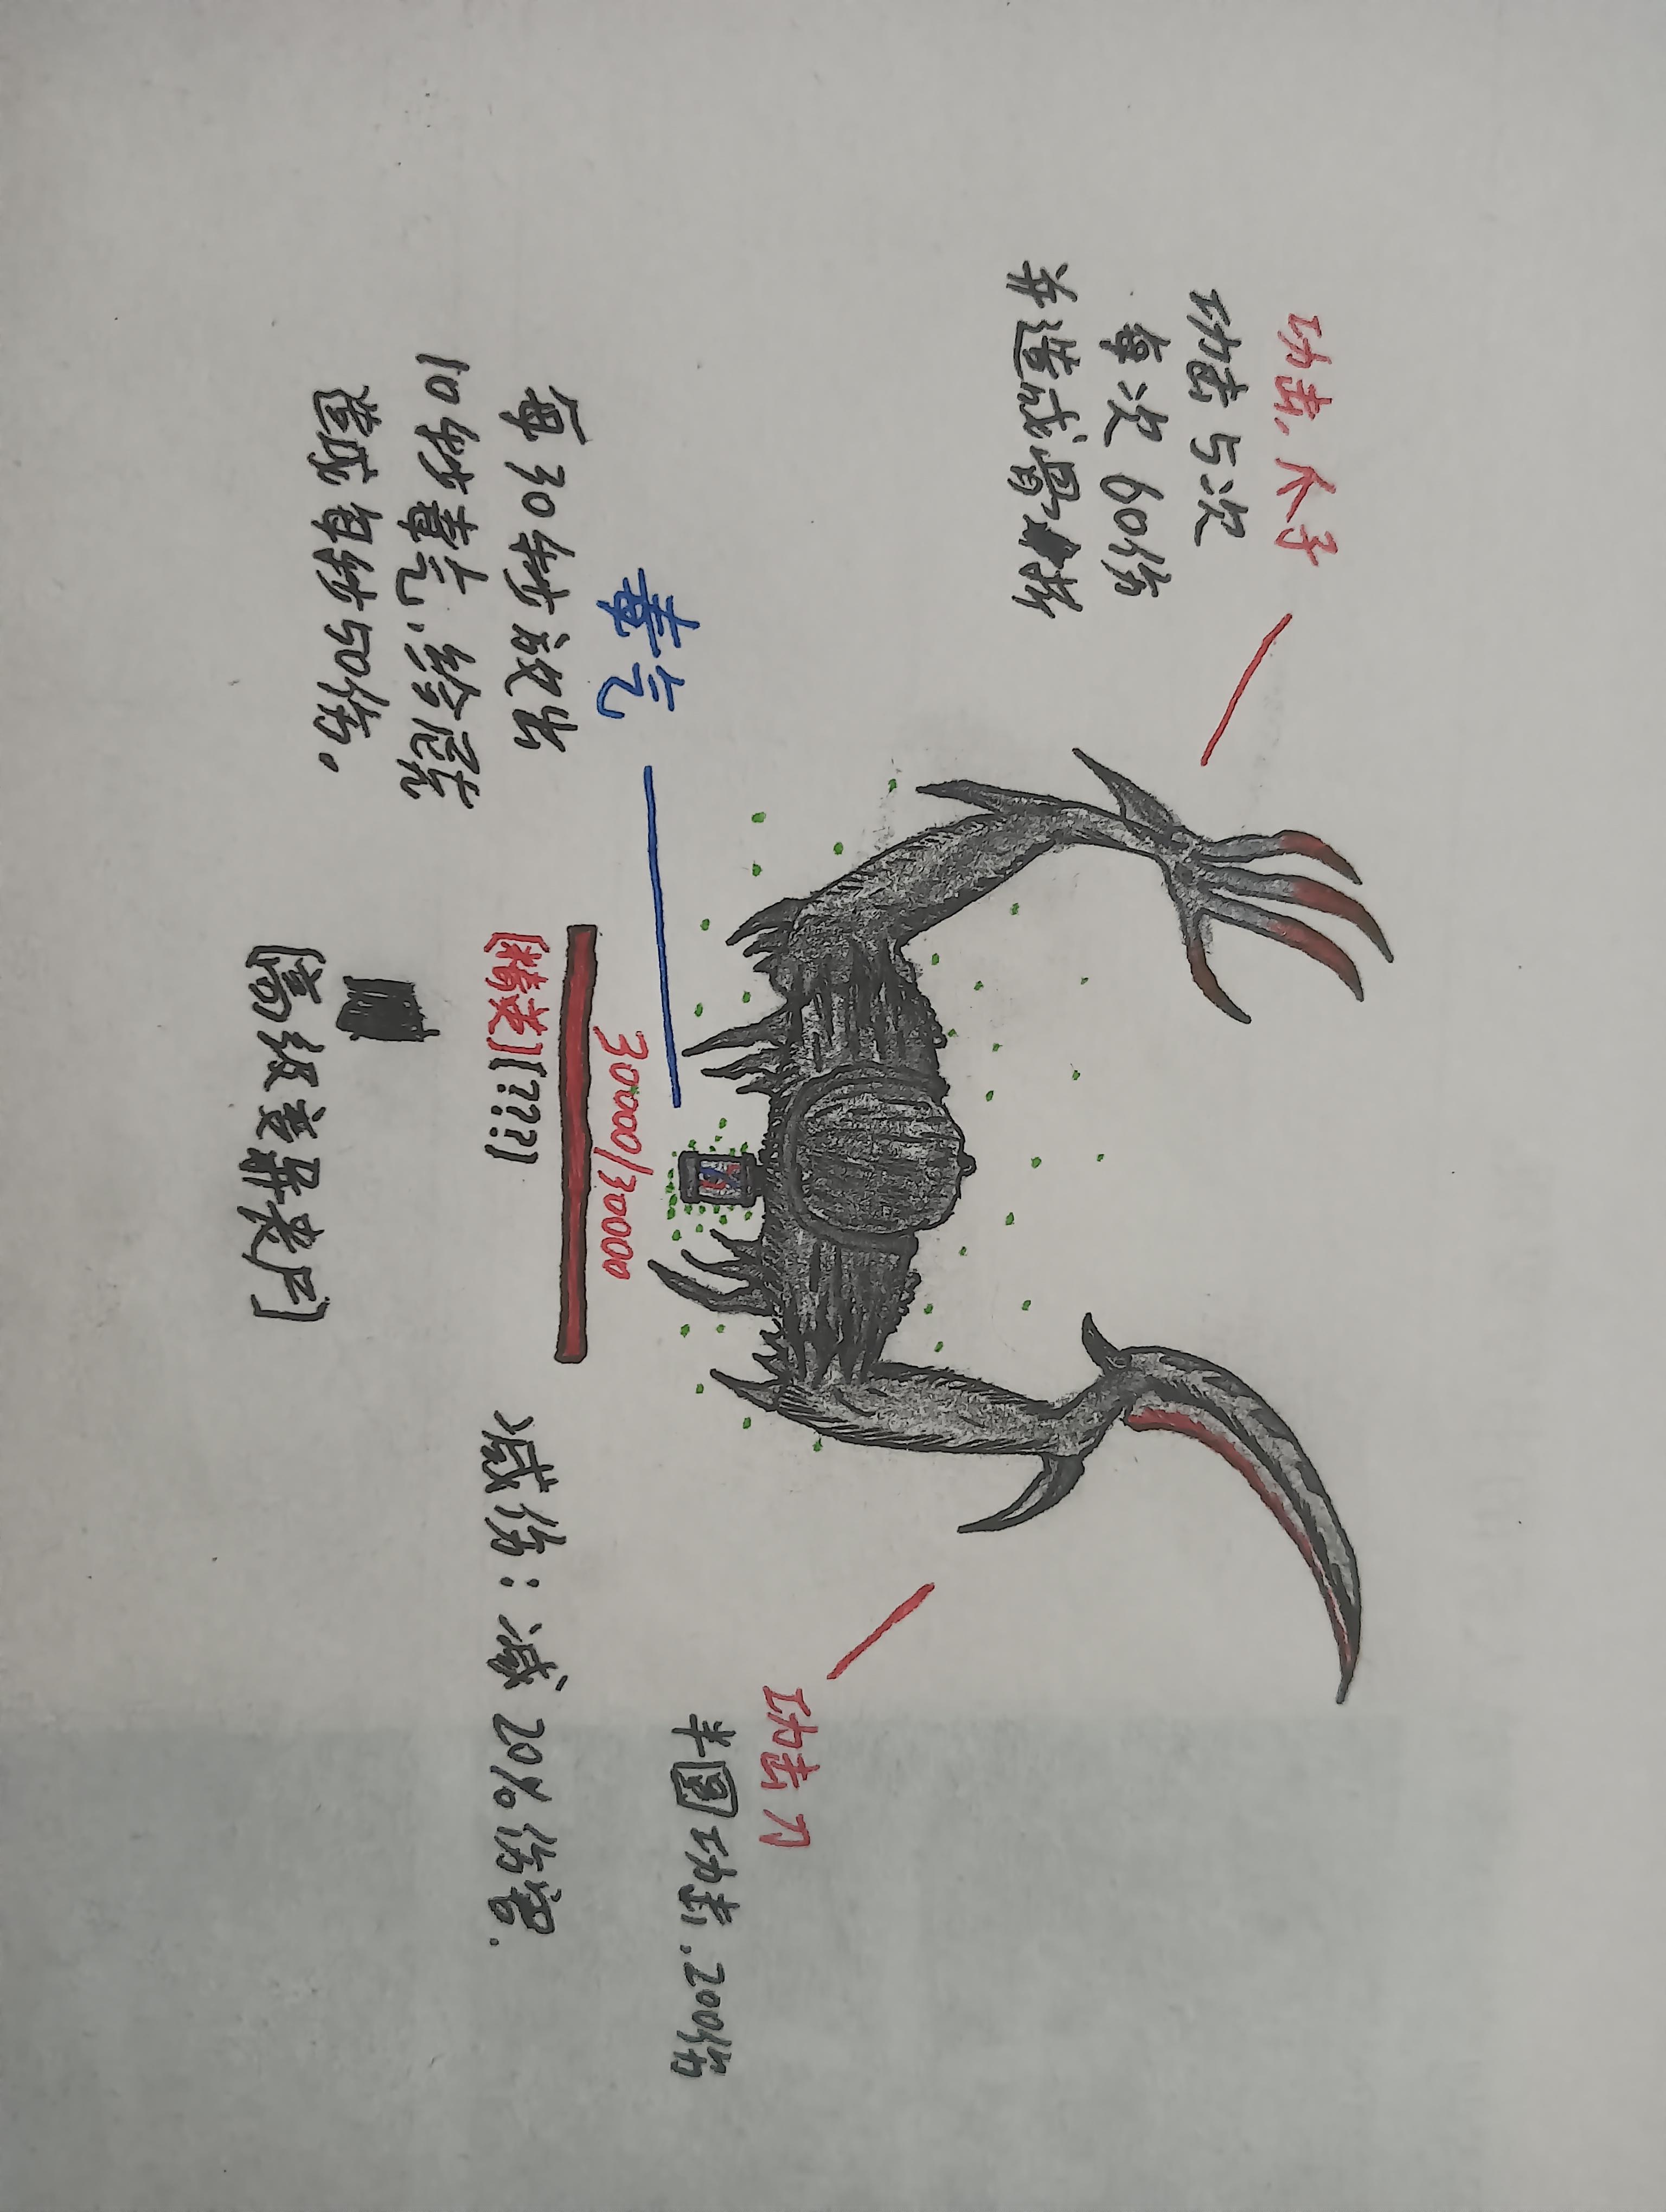 功击,爪子
功击5次
每次60伤
并造成骨折
功击刀
半圆功击.200伤
毒气
每30秒放出
10秒毒气,给
造成每秒50伤.
30000/30000
[精英][???]
减伤:减20%伤害.
[高级变异丧尸]